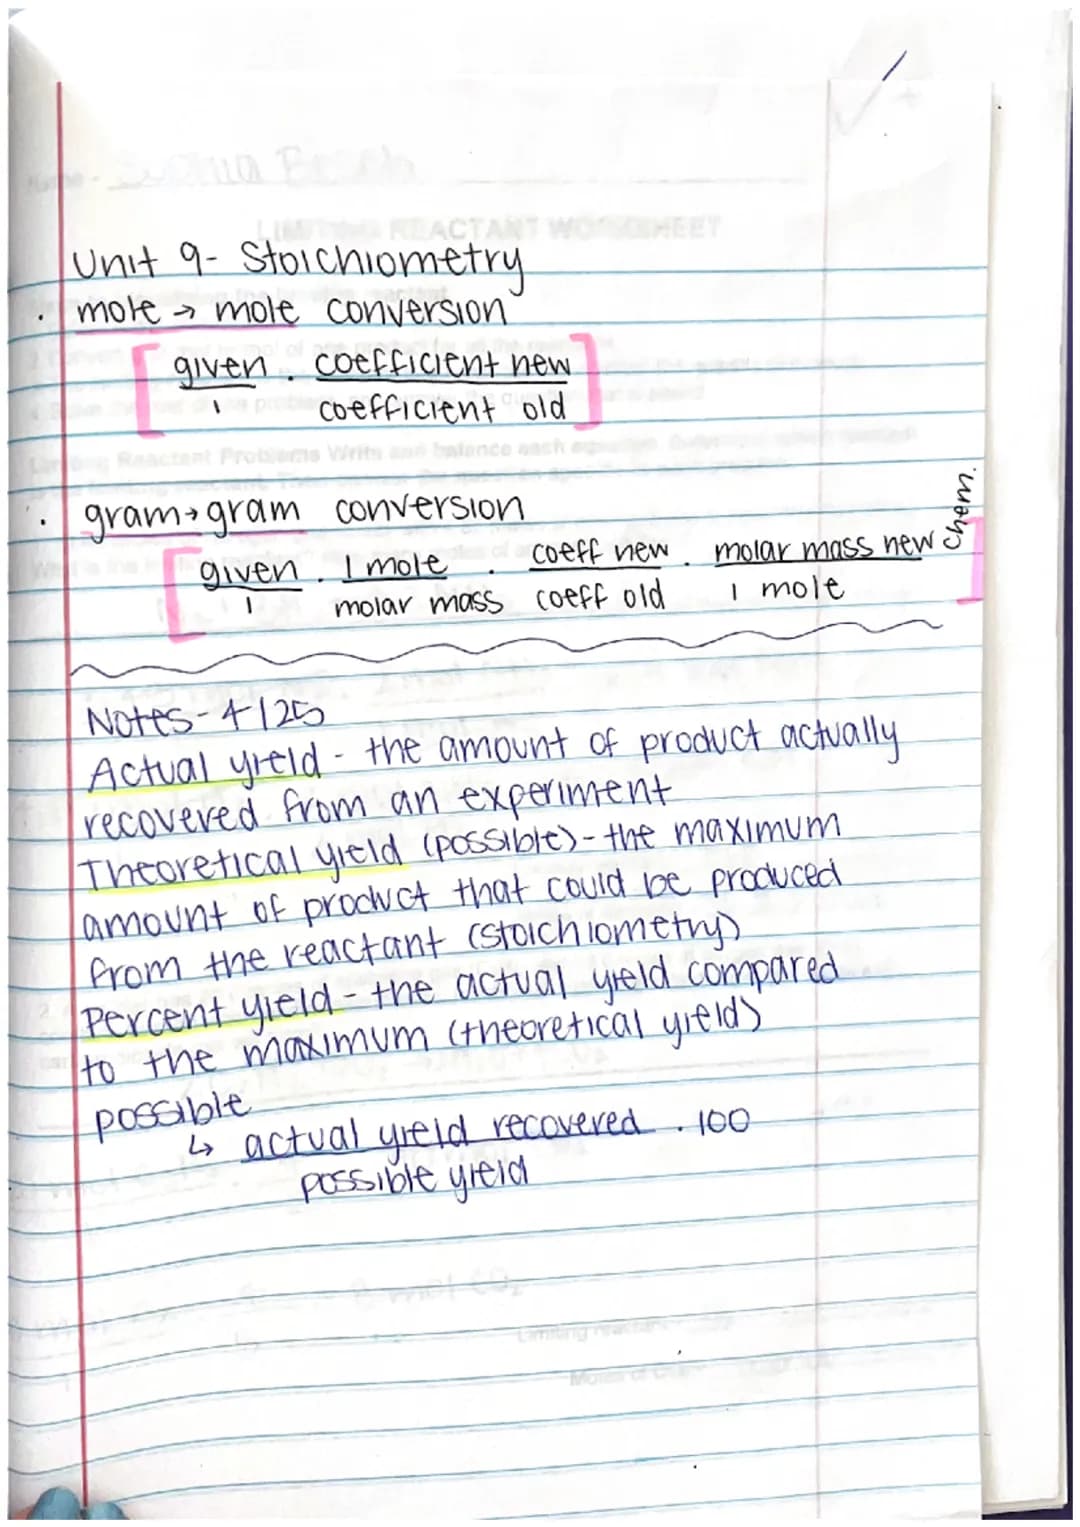 Unit 9- Stoichiometry
. mole → mole conversion
given . coefficient new
1 coefficient old
. gram→gram conversion
given . 1 mole . coeff new . molar mass new chem.
1 molar mass coeff old 1 mole
Notes- 4/25
Actual yield - the amount of product actually
recovered from an experiment
Theoretical yield (possible)- the maximum
amount of product that could be produced
from the reactant (stoichiometry)
Percent yield - the actual yield compared
to the maximum (theoretical yield)
possible
↳ actual yield recovered . 100
possible yield
LIMITING REACTANT WORKSHEET